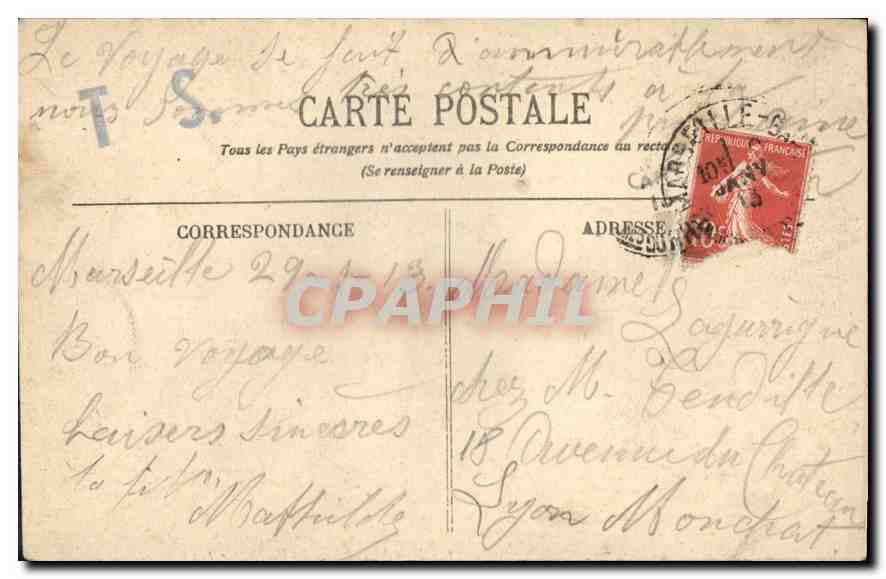 Le Voyage se fait d'ammirablement
nous sommes très contents à la
T S.
CARTE POSTALE
Tous les Pays étrangers n'acceptent pas la Correspondance au recto
(Se renseigner à la Poste)
MARSEILLE-GARE
10
JANV
13
REPUBLIQUE FRANÇAISE
10
CORRESPONDANCE
ADRESSE
Marseille 29-1-13
Bon Voyage
baisers sincères
ta
Mathilde
CPAPHIL
Madame
Lagurrigue
chez M. Tendille
18 Avenue du Chateau
Lyon Monchat